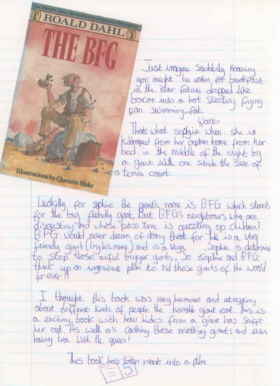 ROALD DAHL
THE BFG
Illustrations by Quentin Blake
Just imagine suddenly knowing
you might be eaten for breakfast
in the near future dropped like
bacon into a hot sizzling frying
pan swimming fat.
Thats what sophie when she is
kidnapped from her orphan home from her
bed in the middle of the night by
a giant with one stride the size of
a tennis court.
Luckily for sophie the giants name is BFG which stands
for the big friendly giant. But BFGS neighbours who are
disgusting and whose pass time is guzzling up children.
BFG would never dream of doing that for he is a very
friendly giant and is a Veg. Sophie is determined
to stop these awful bigger giants. So sophie and BFG
think up an plan to rid these giants of the world
for ever!!
I thought this book was very humorous and
about different kinds of people the horrible giant ones. This is
a exciting book with how from a giant has swept
her out. This well as catching these revolting giants and also
having tea with the queen!
This book has been made into a film